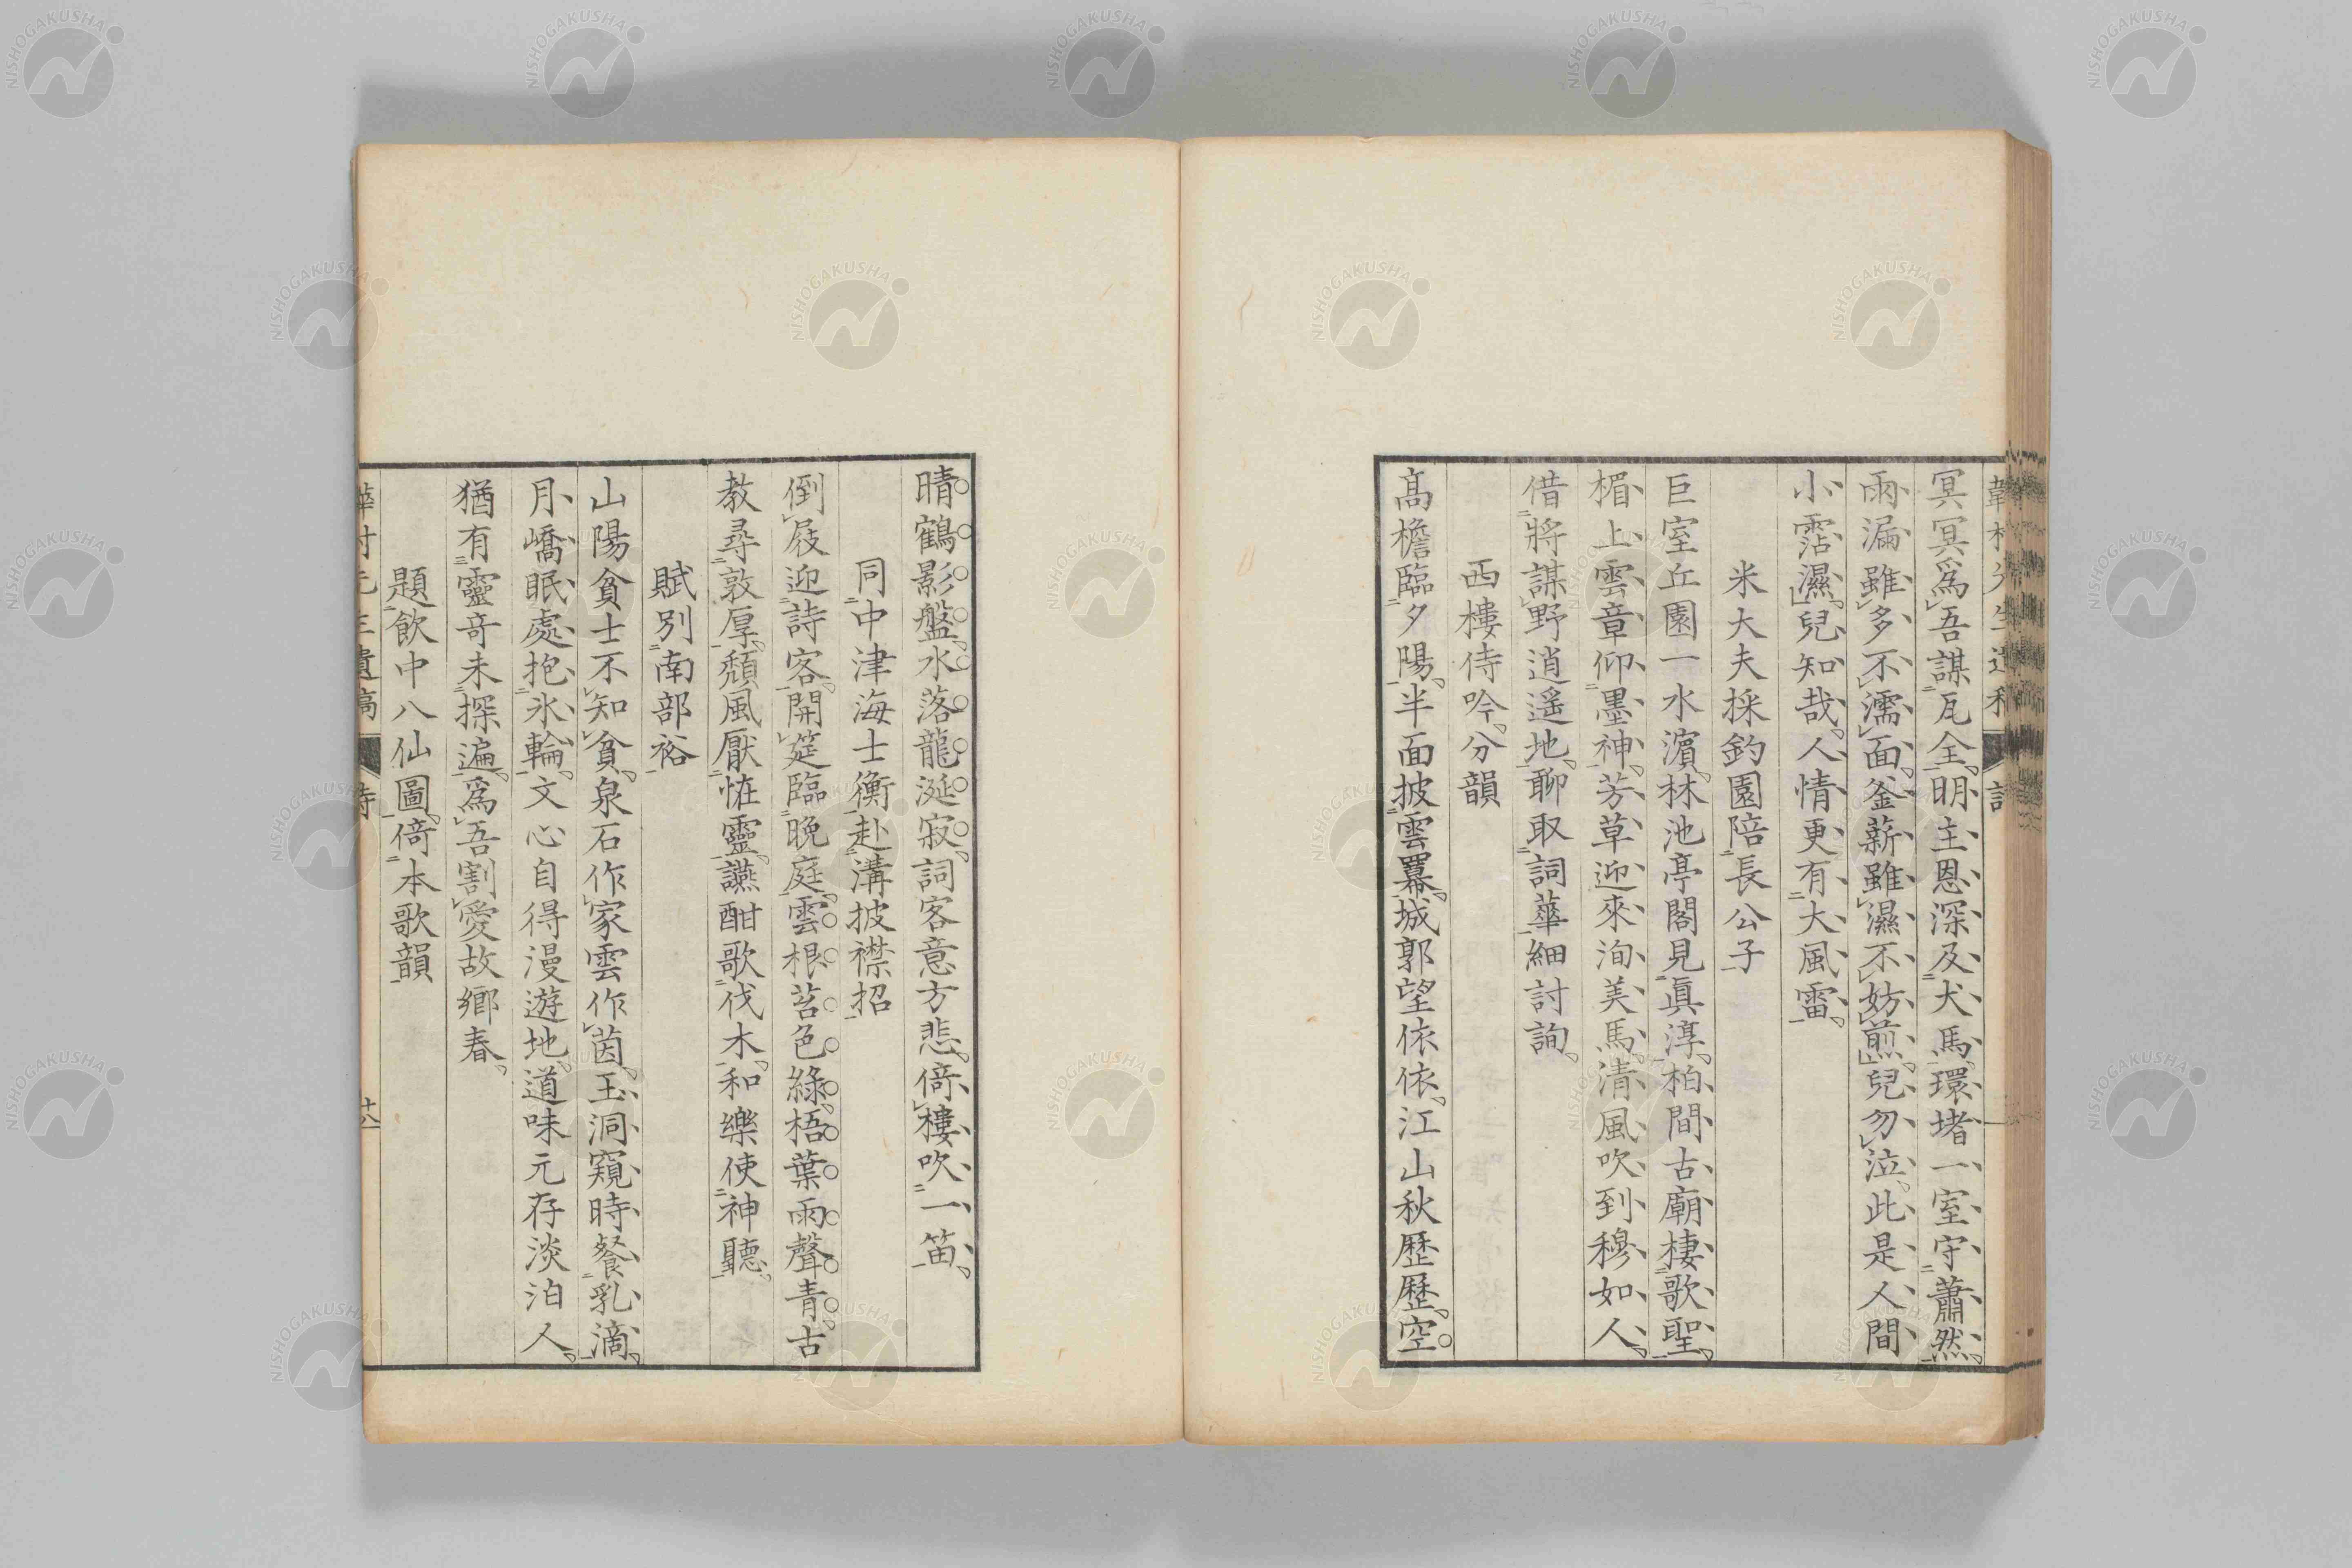 冥冥爲吾謀瓦全明主恩深及犬馬環堵一室守蕭然
雨漏雖多不濡面釜薪雖濕不妨煎兒勿泣此是人間
小霑濕兒知哉人情更有大風雷
米大夫採釣園陪長公子
巨室丘園一水濵林池亭閣見眞淳柏間古廟棲歌聖
楣上雲章仰墨神芳草迎來洵美馬清風吹到穆如人
借將謀野逍遙地聊取詞華細討詢
西樓侍吟分韻
高檐臨夕陽半面披雲羃城郭望依依江山秋歷歷空
晴鶴影盤水落龍涎寂詞客意方悲倚樓吹一笛
同中津海士衡赴溝披襟招
倒屐迎詩客開筵臨晚庭雲根苔色綠梧葉雨聲青古
教尋敦厚頹風厭怪靈讌酣歌伐木和樂使神聽
賦別南部裕
山陽貧士不知貧泉石作家雲作茵玉洞窺時餐乳滴
月嶠眠處抱氷輪文心自得漫遊地道味元存淡泊人
猶有靈奇未探遍爲吾割愛故鄉春
題飲中八仙圖倚本歌韻
NISHOGAKUSHA